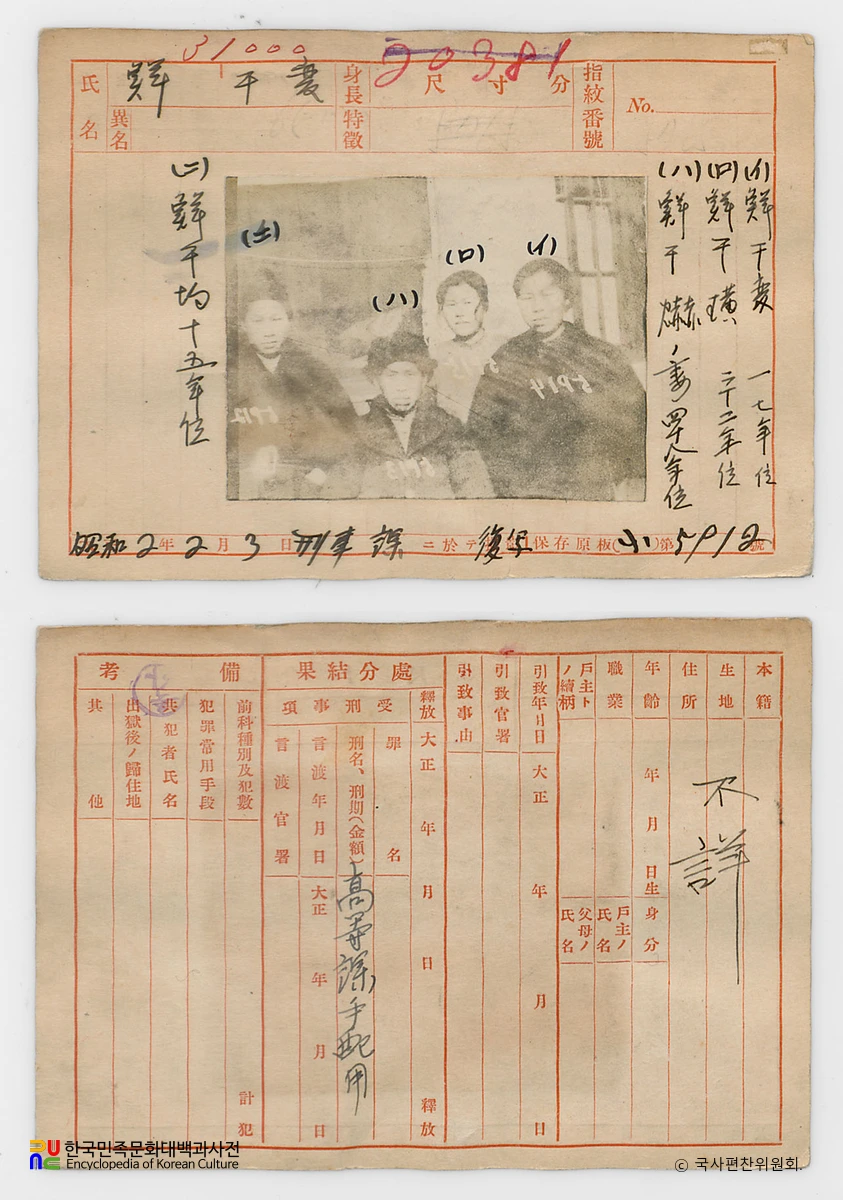 31000
20381
氏名 鮮于爕
異名
身長 尺 寸 分
特徵
指紋番號
No.
(イ)鮮于爕 一七年位
(ロ)鮮于璜 二十二年位
(ハ)鮮于爀ノ妻 四八年位
(ニ)鮮于均十五年位
(ニ)
(ハ)
(ロ)
(イ)
5914
昭和2年2月3日刑事課ニ於テ復写 保存原板(小)第5912號
本籍
生地
住所
不詳
年齡 年 月 日生
身分
職業
戶主ノ氏名
戶主トノ續柄
父母ノ氏名
引致年月日 大正 年 月 日
引致官署
引致事由
處分結果
釋放 大正 年 月 日 釋放
受刑事項
罪名
刑名、刑期(金額)
高等課手配用
言渡年月日 大正 年 月 日
言渡官署
備考
前科種別及犯數 計 犯
犯罪常用手段
共犯者氏名
出獄後ノ歸住地
其他
한국민족문화대백과사전
Encyclopedia of Korean Culture
© 국사편찬위원회.